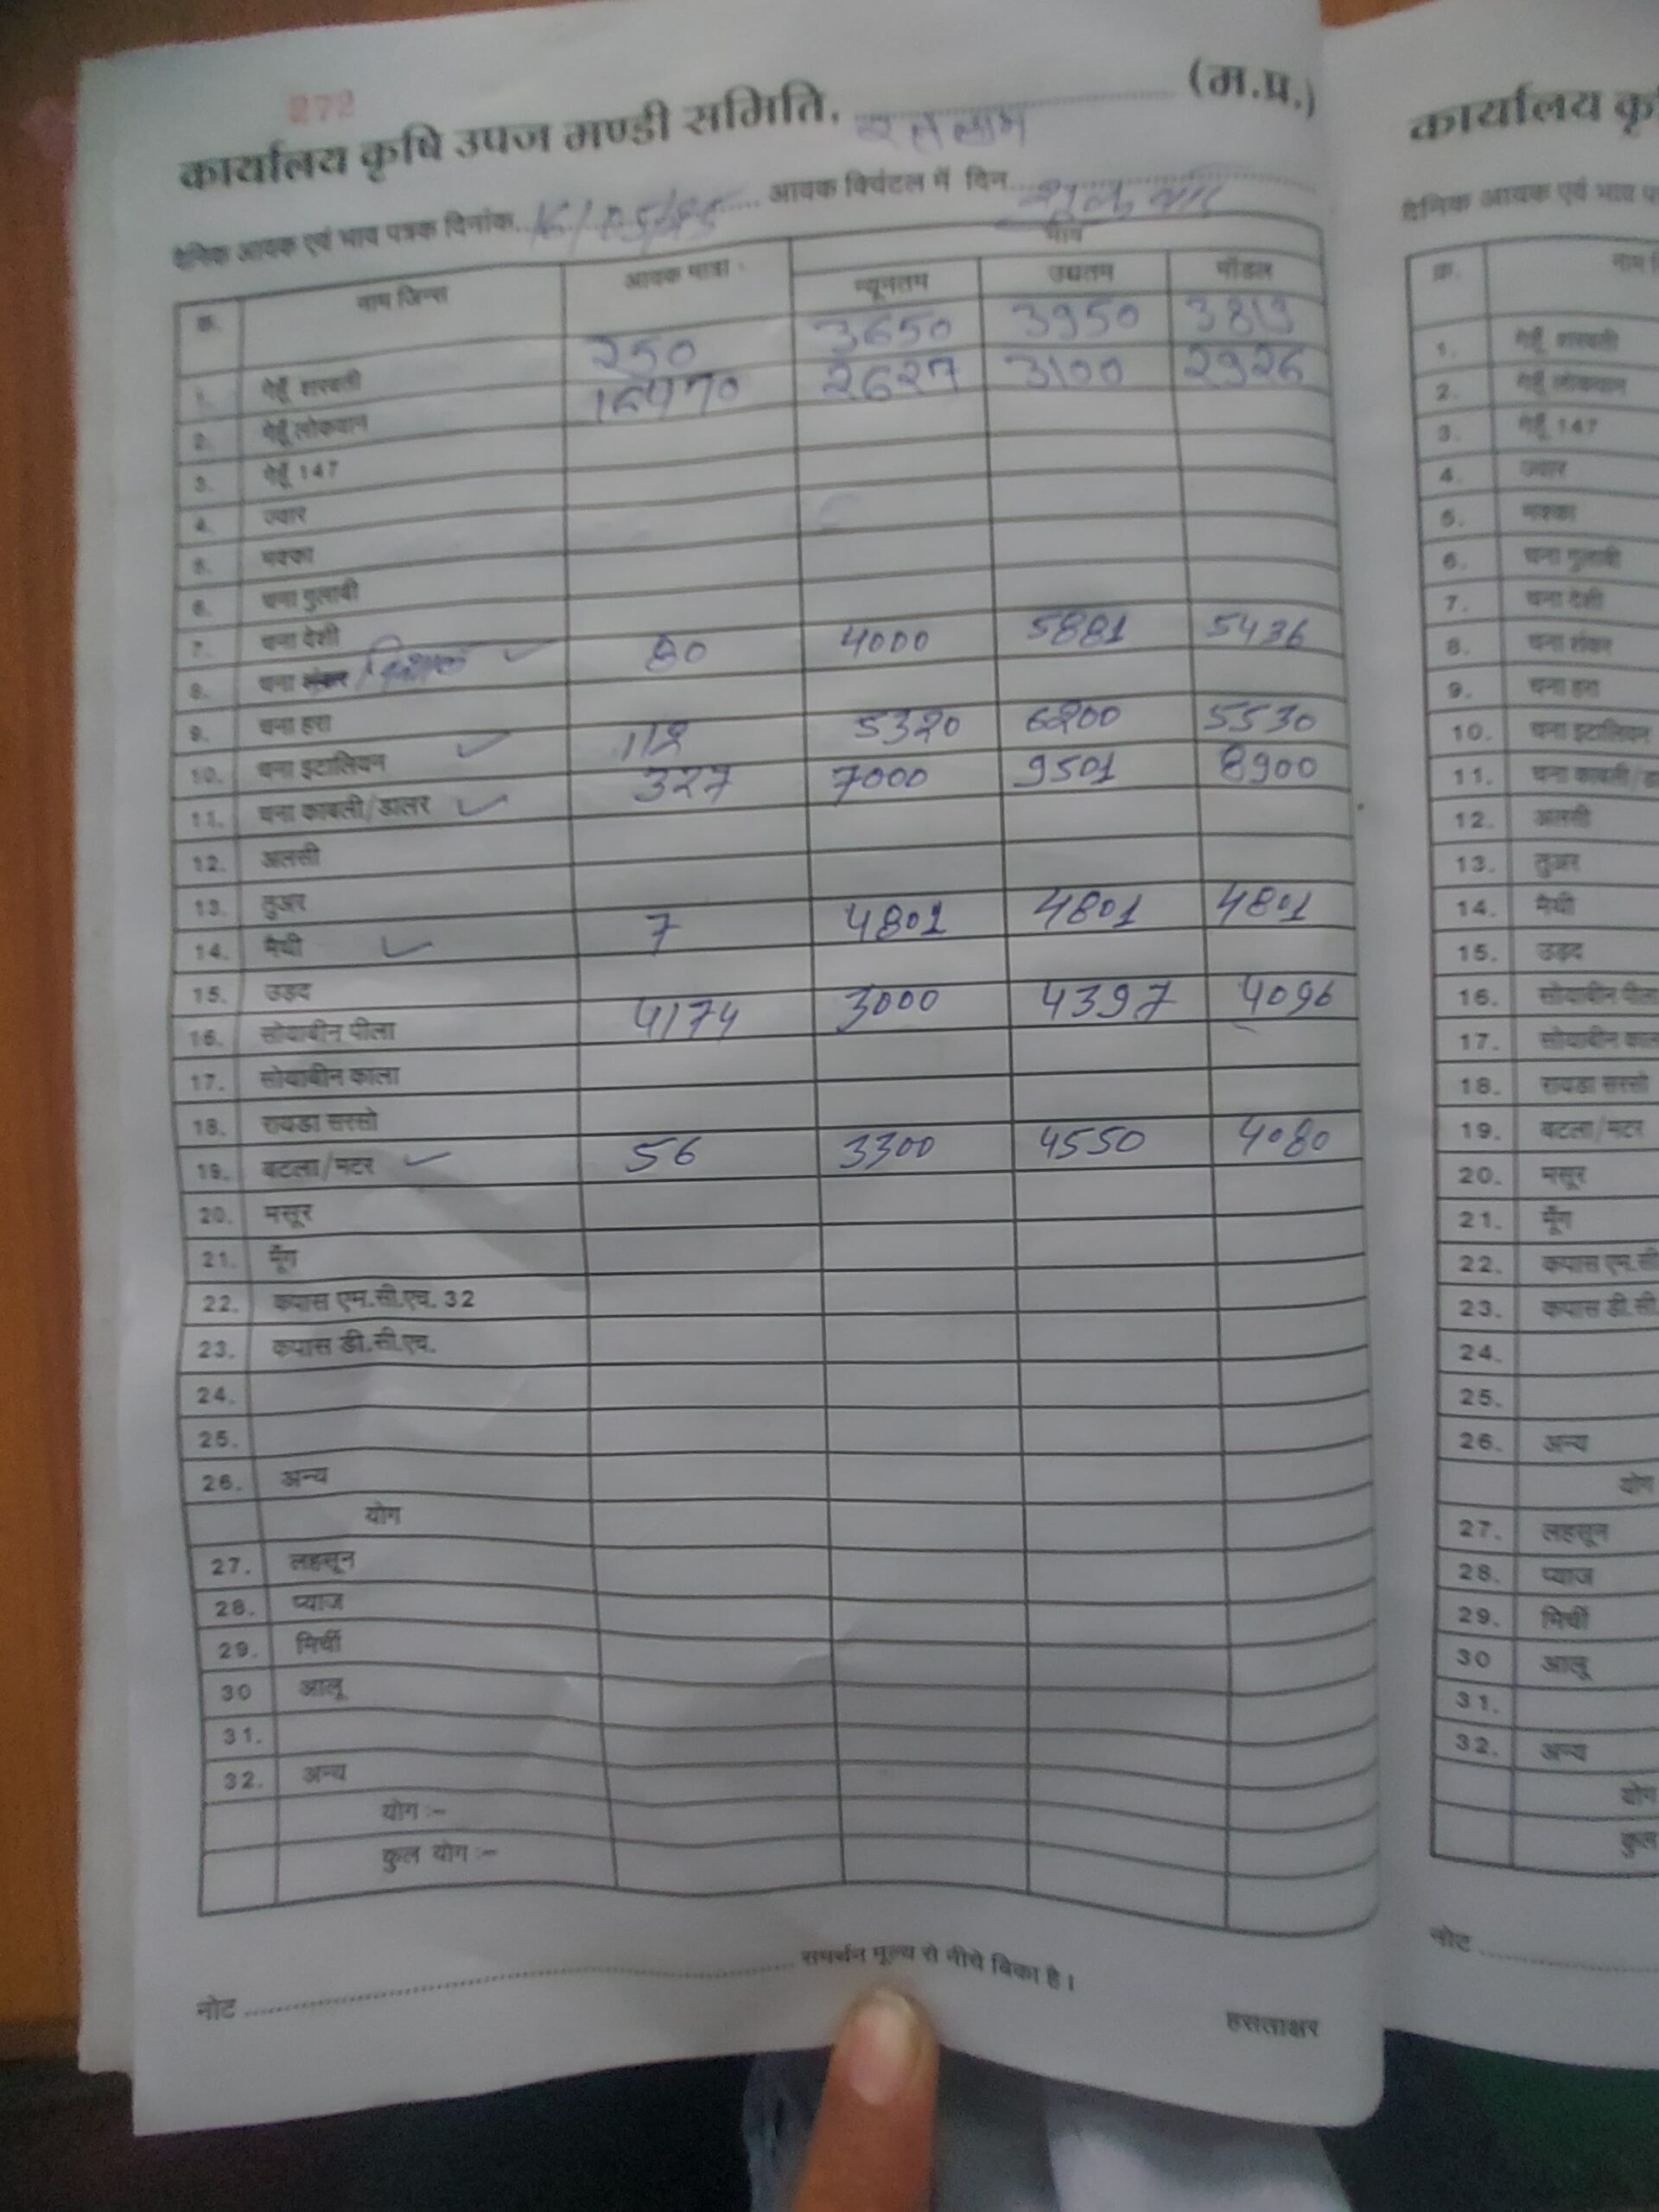 272
कार्यालय कृषि उपज मण्डी समिति, रतलाम (म.प्र.)
दैनिक आवक एवं भाव पत्रक दिनांक 16/05/25 आवक क्विंटल में दिन शुक्रवार
क्र. नाम जिन्स आवक मात्रा भाव
न्यूनतम उच्चतम मॉडल
1. गेहूँ शरबती 250 3650 3950 3819
2. गेहूँ लोकवान 2627 3100 2926
3. गेहूँ 147
4. ज्वार
5. मक्का
6. चना गुलाबी
7. चना देशी
8. चना विशाल ✓ 80 4000 5881 5436
9. चना हरा
10. चना इटालियन ✓ 112 5320 6200 5530
11. चना काबली/डालर ✓ 327 7000 9501 8900
12. अलसी
13. तुअर
14. मैथी ✓ 7 4801 4801 4801
15. उड़द
16. सोयाबीन पीला 4174 3000 4397 4096
17. सोयाबीन काला
18. रायडा सरसो
19. बटला/मटर ✓ 56 3300 4550 4080
20. मसूर
21. मूँग
22. कपास एम.सी.एच. 32
23. कपास डी.सी.एच.
24.
25.
26. अन्य
योग
27. लहसून
28. प्याज
29. मिर्ची
30 आलू
31.
32. अन्य
योग :-
कुल योग :-
नोट समर्थन मूल्य से नीचे बिका है।
हसताक्षर
कार्यालय
दैनिक आवक एवं भाव
क्र. नाम
1. गेहूँ शरबती
2. गेहूँ लोकवान
3. गेहूँ 147
4. ज्वार
5. मक्का
6. चना गुलाबी
7. चना देशी
8. चना शंकर
9. चना हरा
10. चना इटालियन
11. चना काबली/
12. अलसी
13. तुअर
14. मैथी
15. उड़द
16. सोयाबीन पीला
17. सोयाबीन
18. रायडा सरसो
19. बटला/मटर
20. मसूर
21. मूँग
22. कपास एम.सी
23. कपास डी.सी
24.
25.
26. अन्य
योग
27. लहसून
28. प्याज
29. मिर्ची
30 आलू
31.
32. अन्य
योग
कुल
नोट